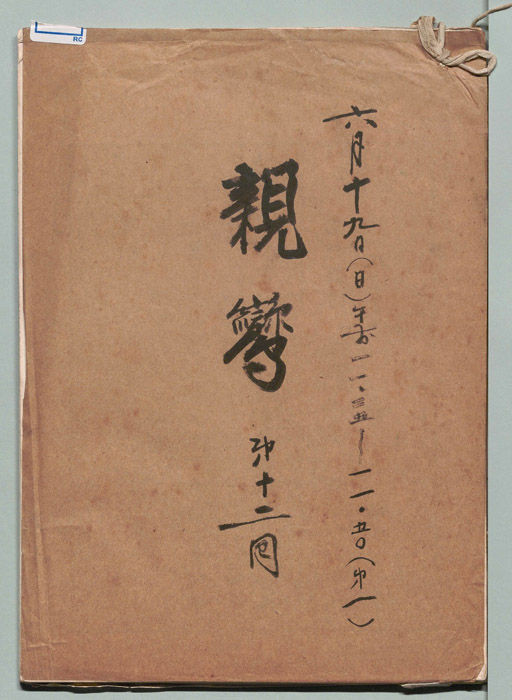 六月十九日(日)午前一一・三五〜一一・五〇(第一)
親鸞 第十二回
RC